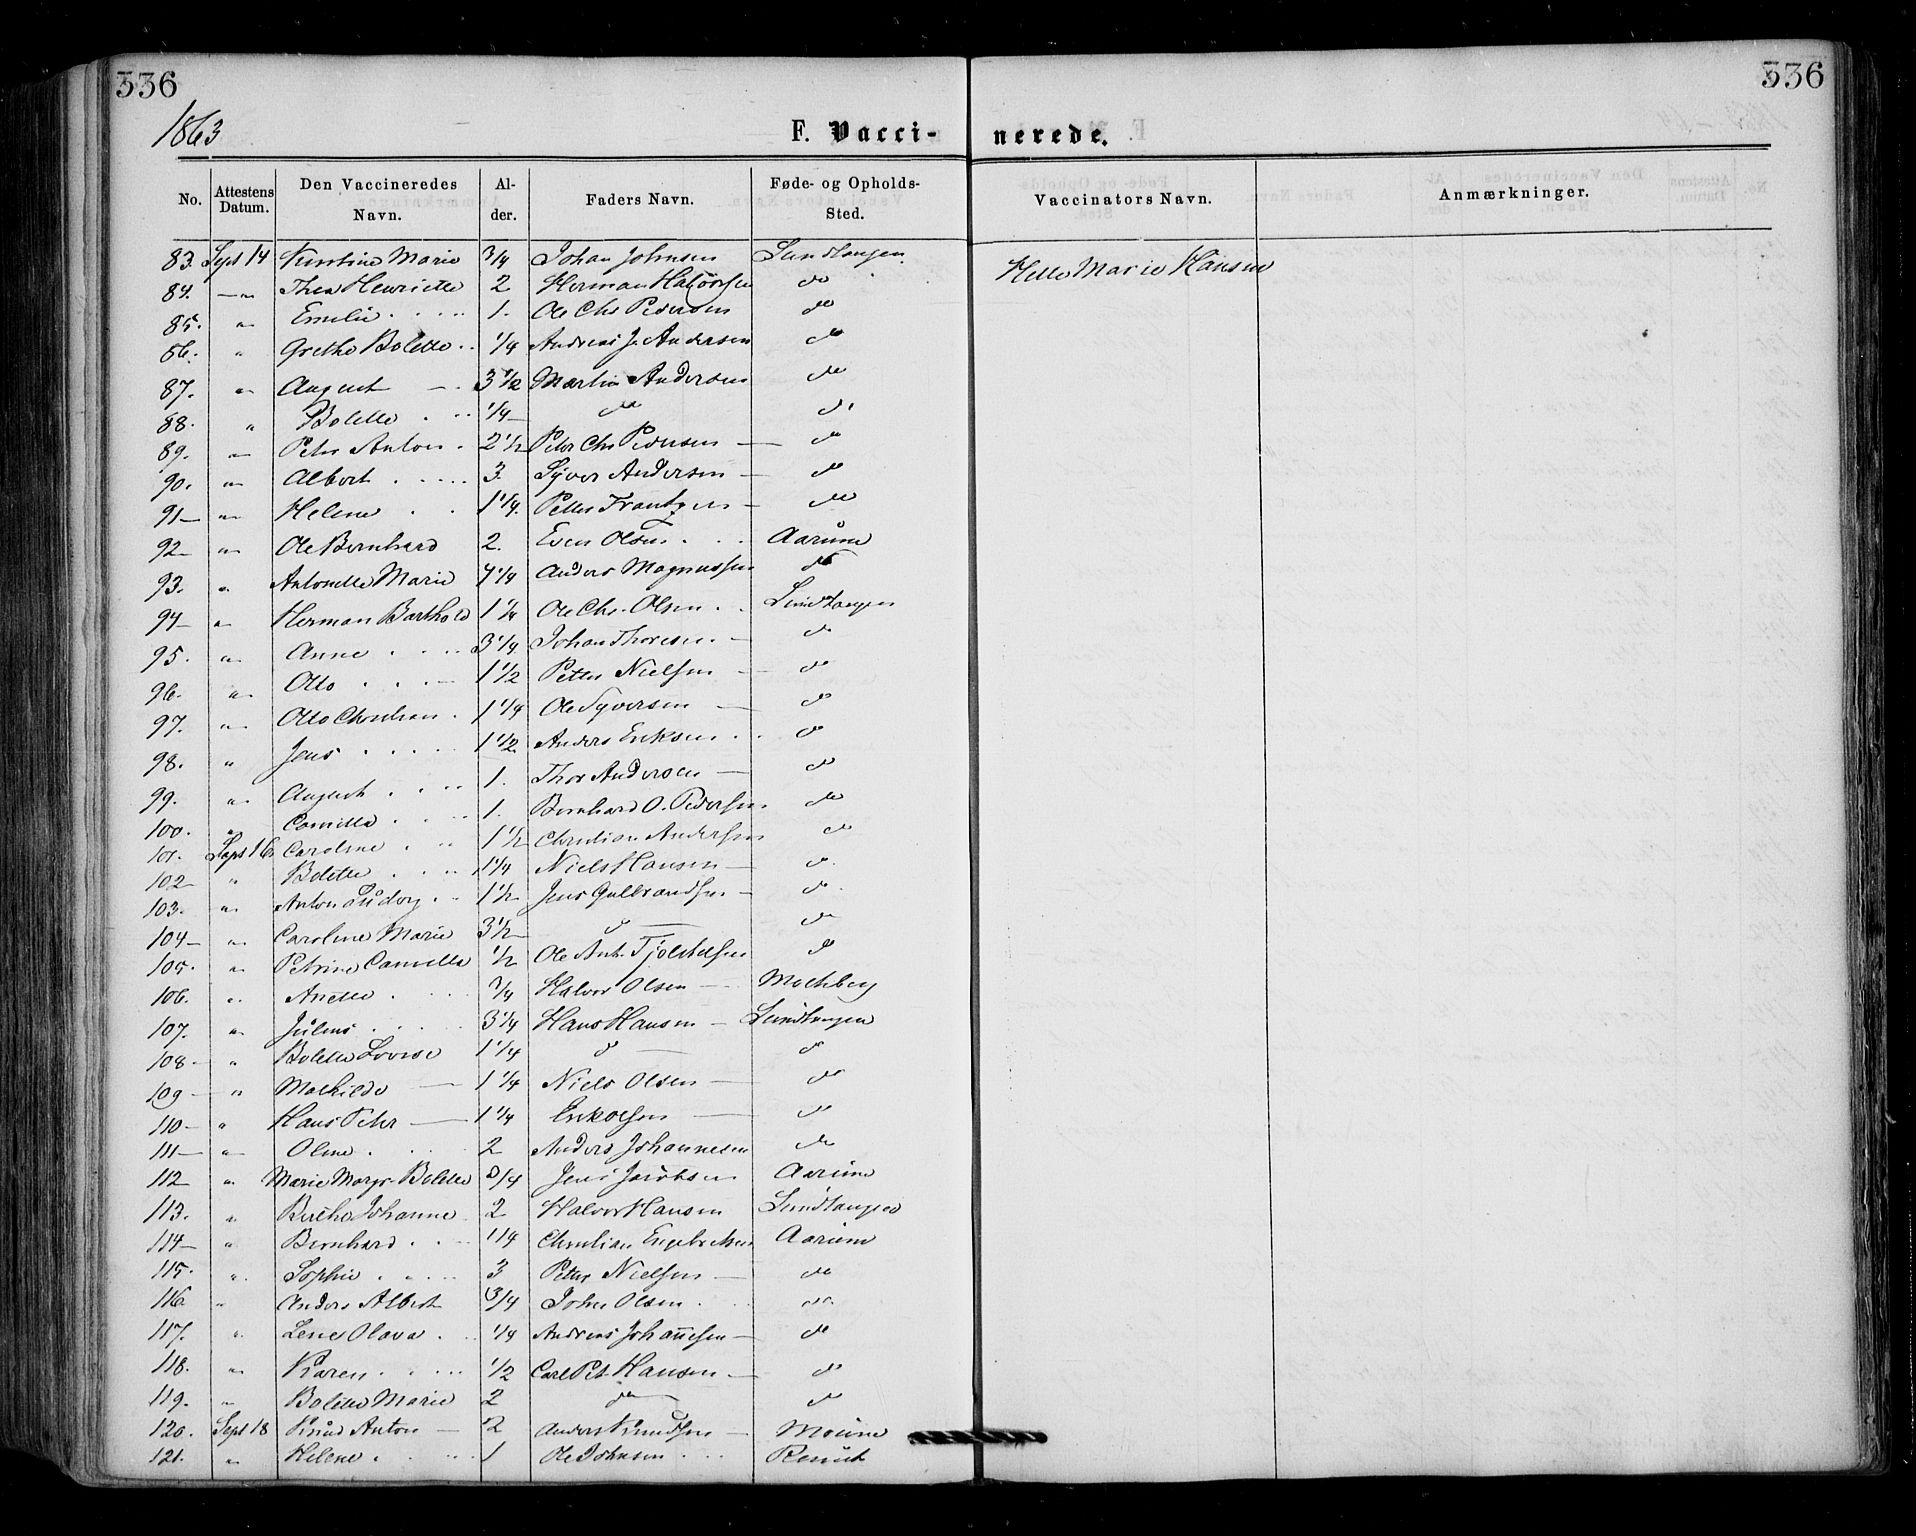 336
336
1863
F. Vacci- nerede.
No. Attestens Datum. Den Vaccineredes Navn. Al- der. Faders Navn. Føde- og Opholds- Sted. Vaccinators Navn. Anmærkninger.
83. Sept 14 Kirstine Marie 3/4 Johan Johnsen Sundtangen Helle Marie Hansen
84. — " Thea Henriette 2 Herman Halvorsen do
85. " Emilie 1. Ole Chr Pedersen do
86. " Grethe Bolette 1/4 Andreas J. Andersen do
87. " August 3 1/2 Martin Andersen do
88. " Bolette 1/4 do do
89. " Peter Anton 2 1/2 Peter Chr Pedersen do
90. " Albert 3 Syver Andersen do
91 " Helene 1 1/4 Petter Frantzen do
92 " Ole Bernhard 2. Even Olsen Aarum
93. " Antonette Marie 4 1/4 Anders Magnussen do
94 " Herman Barthold 1 1/4 Ole Chr. Olsen Sundtangen
95. " Anne 3 1/4 Johan Thoresen do
96. " Otto 1 1/2 Petter Nielsen do
97. " Otto Christian 1 1/4 Ole Syversen do
98. " Jens 1 1/2 Anders Eriksen do
99. " August 1. Thor Andersen do
100. " Camilla 1. Bernhard O. Pedersen do
101. Sept 16 Caroline 1 1/2 Christian Andersen do
102 " Bolette 1 1/4 Niels Hansen do
103. " Anton Ludvig 1 1/2 Jens Gulbrandsen do
104 " Caroline Marie 3 1/2 do do
105. " Petrine Camilla 1/2 Ole Ant. Tjølstelsen do
106. " Anette 3/4 Halvor Olsen Mochberg
107. " Julius 3 1/4 Hans Hansen Sundtangen
108 " Bolette Lovise 1 1/4 do do
109 " Mathilde 1 1/4 Niels Olsen do
110 " Hans Peter 1 1/4 Erik Olsen do
111 " Oline 2 Anders Johannesen do
112 " Marie Margr. Bolette 3/4 Jens Jacobsen Aarum
113. " Berthe Johanne 2 Halvor Hansen Sundtangen
114 " Bernhard 1 1/4 Christian Engebretsen Aarum
115. " Sophie 3 Petter Nielsen do
116 " Anders Albert 3/4 John Olsen do
117. " Lene Olava 1/4 Andreas Johannesen do
118. " Karen 1/2 Carl Pet. Hansen do
119. " Bolette Marie 2 do do
120. Sept 18 Knud Anton 2 Anders Knudsen Moum
121. " Helene 1 Ole Johnsen